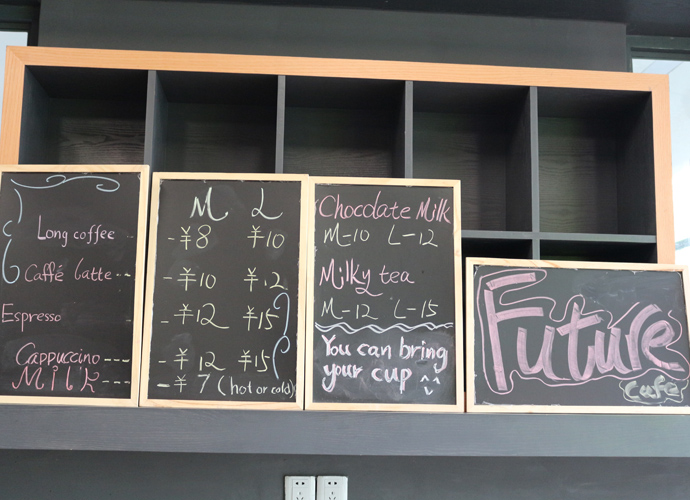 Long coffee
Caffé latte --
Espresso
Cappuccino ---
Milk ---
M L
-¥8 ¥10
-¥10 ¥12
-¥12 ¥15
-¥12 ¥15
-¥7 (hot or cold)
Chocolate Milk
M-10 L-12
Milky tea
M-12 L-15
You can bring
your cup ^_^
Future
Cafe